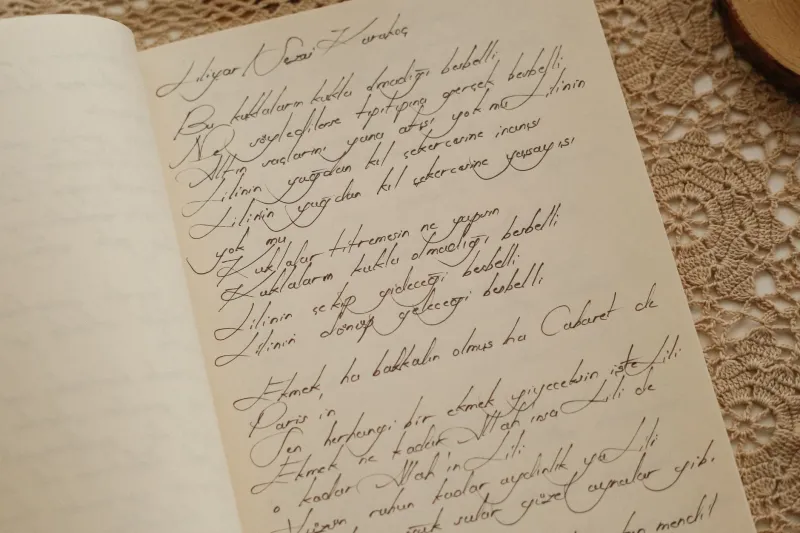 Liliyar / Sezai Karakoç
Bu kuklaların kukla olmadığı besbelli
Ne söyledilerse tıpıtıpına gerçek besbelli
Altın saçlarını yana atışı yok mu Lilinin
Lilinin yağdan kıl çekercesine inanışı
Lilinin yağdan kıl çekercesine yaşayışı
yok mu
Kuklalar titremesin ne yapsın
Kuklaların kukla olmadığı besbelli
Lilinin çekip gideceği besbelli
Lilinin dönüp geleceği besbelli
Ekmek, ha bakkalın olmuş ha Cabaret de
Paris in
Sen herhangi bir ekmek yiyeceksin işte Lili
Ekmek ne kadar Allah ınsa Lili de
o kadar Allah'ın Lili
Yüzün ruhun kadar aydınlık ya Lili
sular güzel aynalar gibi
mendil